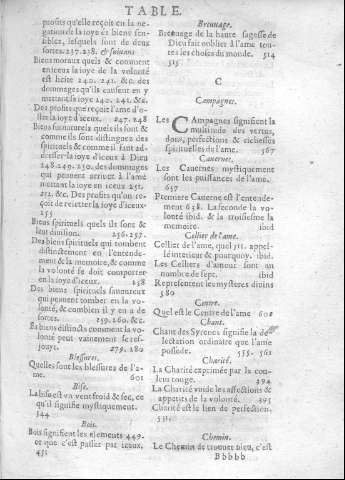 TABLE.
profits qu'elle reçoit en la ne-
gation de la ioye és biens sen-
sibles, lesquels sont de deux
sortes. 237. 238. & suiuans
Biens moraux quels & comment
en iceux la ioye de la volonté
est licite 240. 241. &c. des
dommages qu'ils causent en y
mettant sa ioye 240. 241. &c.
Des profits que reçoit l'ame d'o-
ster la ioye d'iceux. 247. 248
Biens surnaturels quels ils sont &
comme ils sont distinguez des
spirituels & comme il faut ad-
dresser la ioye d'iceux à Dieu
248. 249. 250. des dommages
qui peuuent arriuer à l'ame
mettant la ioye en iceux 251.
252. &c. Des profits qu'on re-
çoit de reietter la ioye d'iceux.
255
Biens spirituels quels ils sont &
leur diuision. 256. 257.
Des biens spirituels qui tombent
distinctement en l'entende-
ment & la memoire, & comme
la volonté se doit comporter
en la ioye d'iceux. 258
Des biens spirituels sauoureux
qui peuuent tomber en la vo-
lonté, & combien il y en a de
sortes. 259. 260. &c.
Es biens distincts comment la vo-
lonté peut vainement se res-
iouyr. 279. 280
Blessures.
Quelles sont les blessures de l'a-
me. 601
Bise.
La bise est vn vent froid & sec, ce
qu'il signifie mystiquement.
544
Bois.
Bois signifient les elements 449.
ce que c'est passer par iceux.
451
Breuuage.
Breuuage de la haute sagesse de
Dieu fait oublier à l'ame tou-
tes les choses du monde. 514
515
C
Campagnes.
Les CAmpagnes signifient la
multitude des vertus,
dons, perfections & richesses
spirituelles de l'ame. 567
Cauernes.
Les Cauernes mystiquement
sont les puissances de l'ame.
657
Premiere Cauerne est l'entende-
ment 658. La seconde la vo-
lonté ibid. & la troisiesme la
memoire. ibid
Cellier de l'ame.
Cellier de l'ame, quel 511. appel-
lé interieur & pourquoy. ibid.
Les Celliers d'amour sont au
nombre de sept. ibid
Representent les mysteres diuins
580
Centre.
Quel est le Centre de l'ame 608
Chant.
Chant des Syrenes signifie la de-
lectation ordinaire que l'ame
possede. 555. 562
Charité.
La Charité exprimée par la cou-
leur rouge. 394
La Charité vuide les affections &
appetits de la volonté. 395
Charité est le lien de perfection.
Chemin.
Le Chemin de trouuer Dieu, c'est
Bbbbb